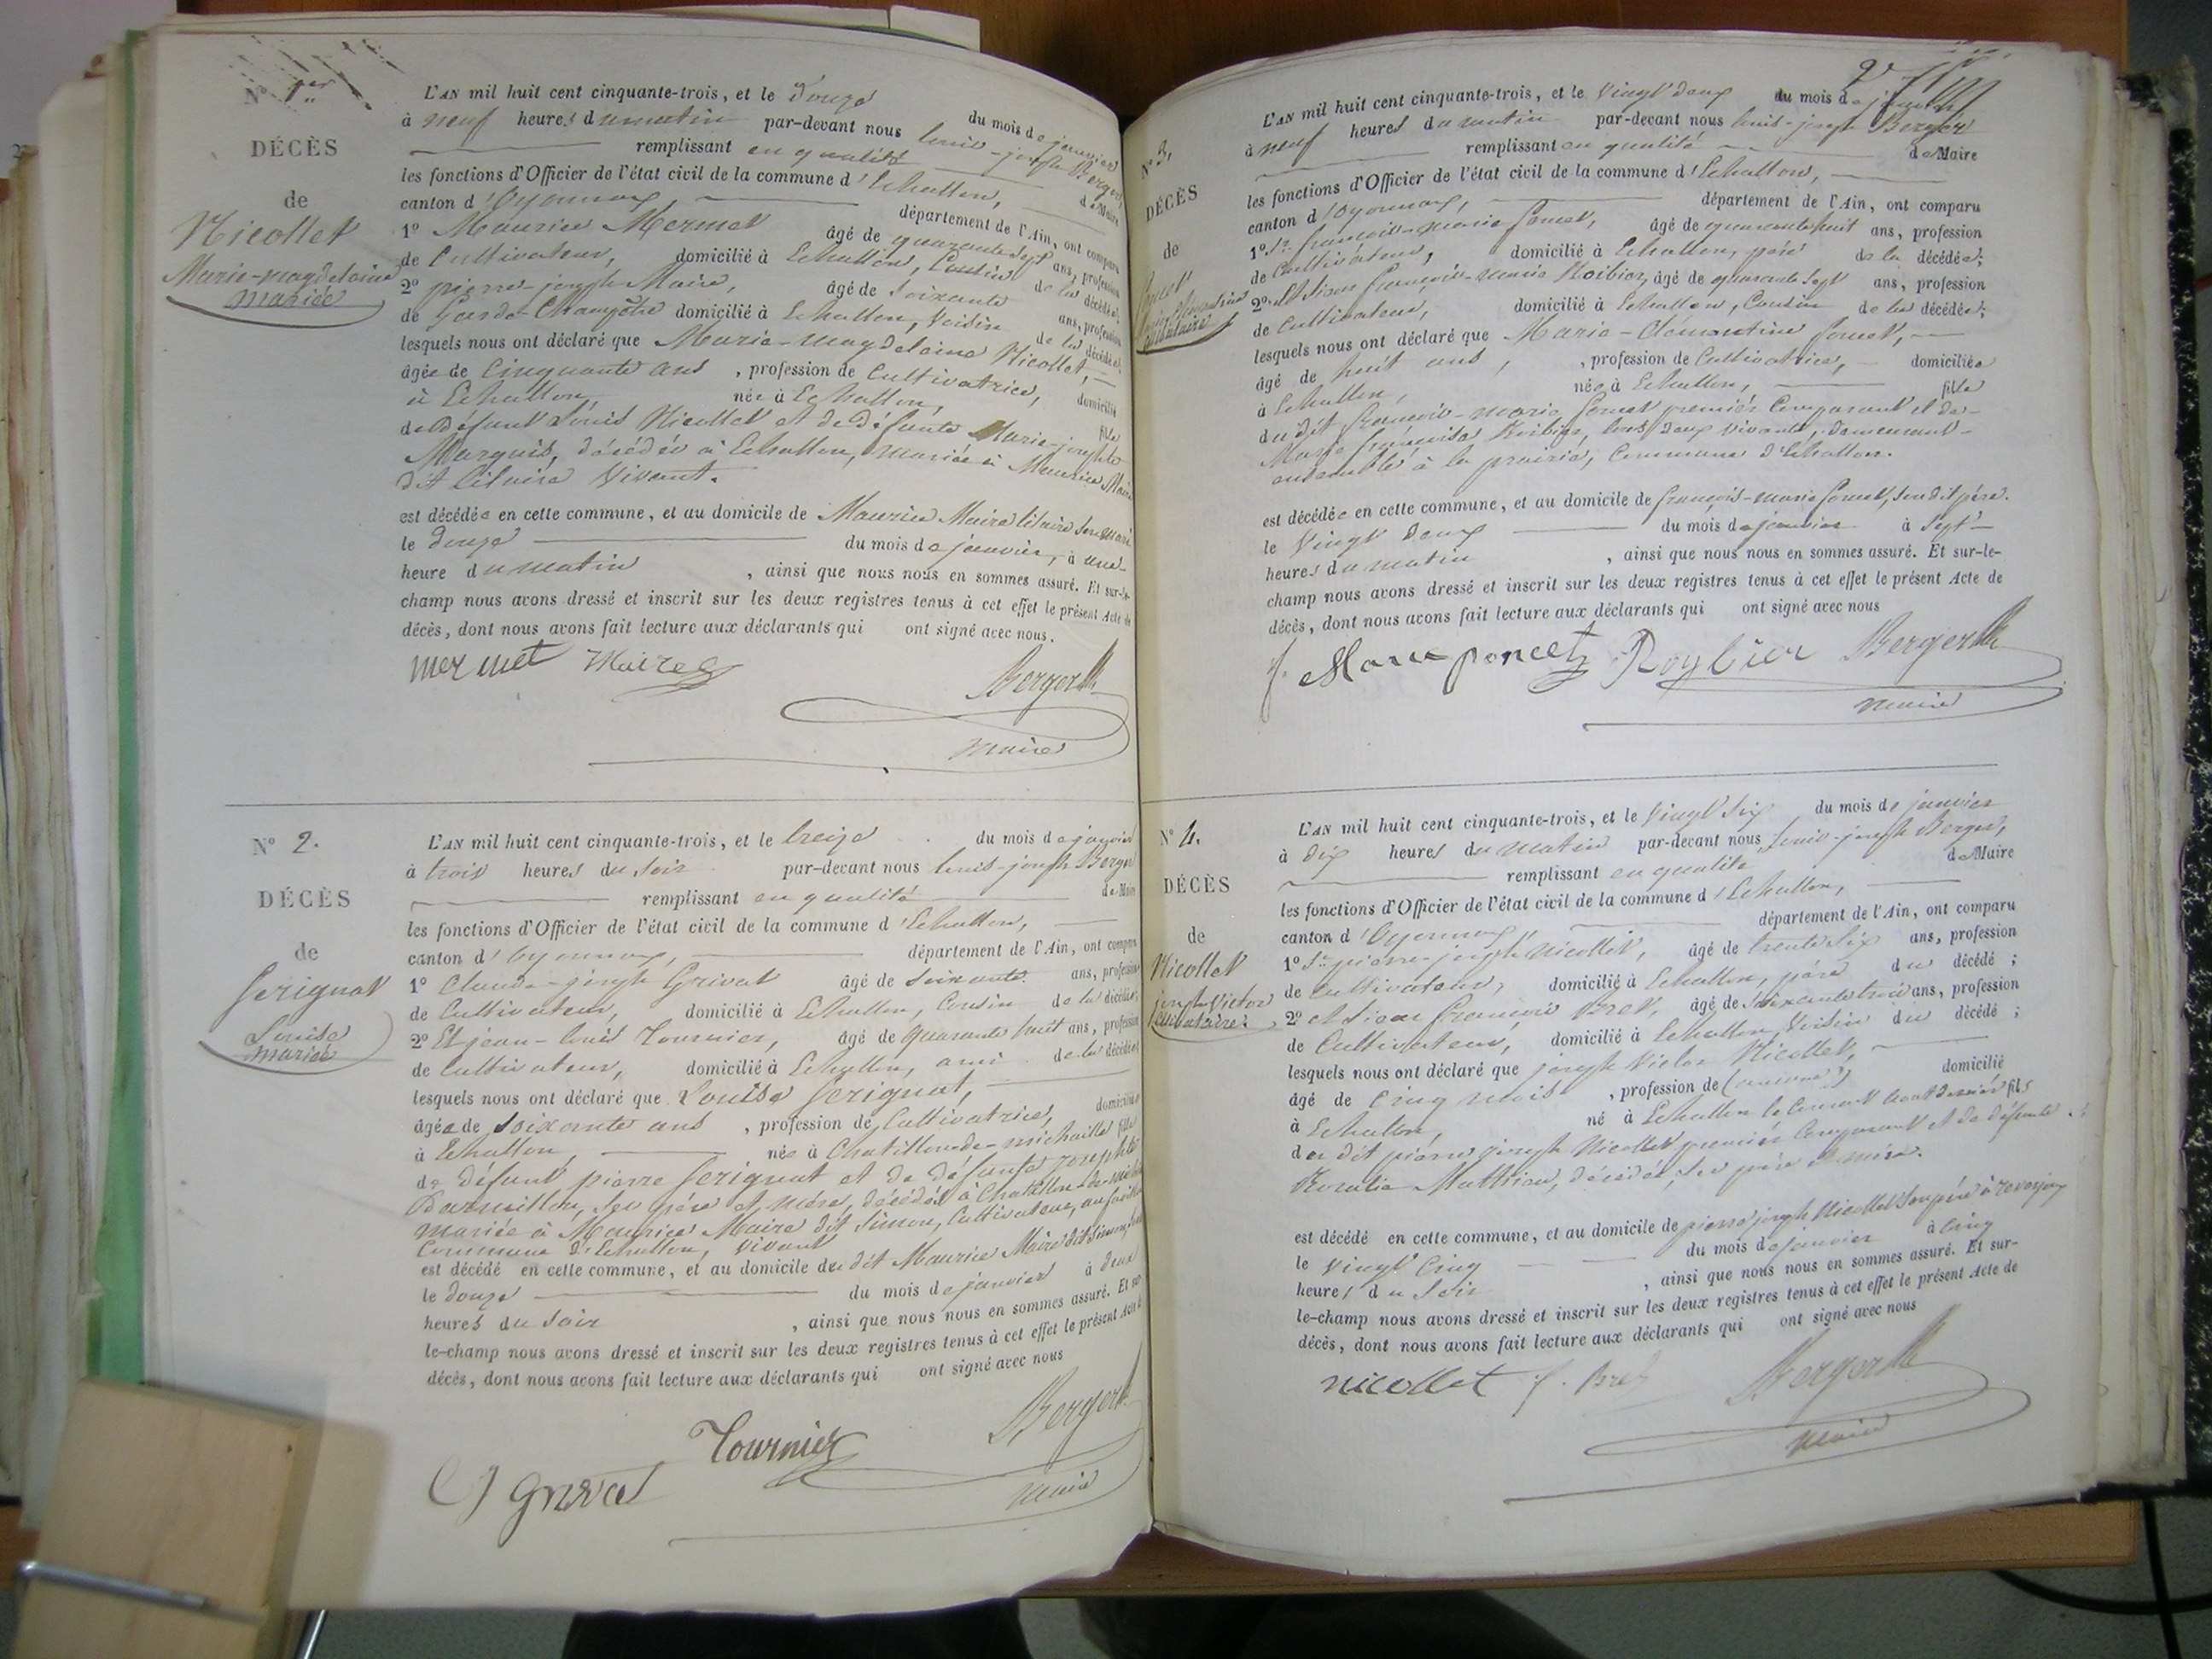 N° 1er
DÉCÈS
de
Nicollet
Marie-magdelaine
mariée
L'AN mil huit cent cinquante-trois, et le Douze du mois de janvier
à neuf heures du matin par-devant nous louis-joseph Berger,
remplissant en qualité de Maire
les fonctions d'Officier de l'état civil de la commune d'Echallon,
canton d'Oyonnax, département de l'Ain, ont comparu
1° Maurice Mermet âgé de quarante sept ans, profession
de Cultivateur, domicilié à Echallon, Cousin de la décédée;
2° pierre-joseph Maire, âgé de soixante ans, profession
de Garde-Champêtre domicilié à Echallon, Voisin de la décédée;
lesquels nous ont déclaré que Marie-magdelaine Nicollet,
âgée de Cinquante ans, profession de Cultivatrice, domicilié
à Echallon, née à Echallon, fille
de défunt Louis Nicollet et de défunte Marie-josephte
Marquis, décédés à Echallon, mariée à Maurice Maire
dit lilaire Vivant.
est décédée en cette commune, et au domicile de Maurice Maire lilaire son mari
le Douze du mois de janvier, à une
heure du matin, ainsi que nous nous en sommes assuré. Et sur-le-
champ nous avons dressé et inscrit sur les deux registres tenus à cet effet le présent Acte de
décès, dont nous avons fait lecture aux déclarants qui ont signé avec nous.
mermet Maire Berger
maire
N° 2.
DÉCÈS
de
Serignat
Louise
mariée
L'AN mil huit cent cinquante-trois, et le treize du mois de janvier
à trois heures du soir par-devant nous louis-joseph Berger
remplissant en qualité de Maire
les fonctions d'Officier de l'état civil de la commune d'Echallon,
canton d'Oyonnax, département de l'Ain, ont comparu
1° Claude-joseph Grivat âgé de soixante ans, profession
de Cultivateur, domicilié à Echallon, Cousin de la décédée;
2° Et jean-louis Tournier, âgé de quarante huit ans, profession
de Cultivateur, domicilié à Echallon, ami de la décédée;
lesquels nous ont déclaré que Louise Serignat,
âgée de soixante ans, profession de Cultivatrice, domiciliée
à Echallon, née à Chatillon-de-michaille fille
de défunt pierre Serignat et de défunte josephte
ses père et mère, décédés à Chatillon-de-michaille
mariée à Maurice Maire dit Simon, Cultivateur,
Commune d'Echallon, vivant
est décédé en cette commune, et au domicile du dit Maurice Maire dit Simon,
le douze du mois de janvier à deux
heures du soir, ainsi que nous nous en sommes assuré. Et sur
le-champ nous avons dressé et inscrit sur les deux registres tenus à cet effet le présent Acte de
décès, dont nous avons fait lecture aux déclarants qui ont signé avec nous
Tournier Berger
Grivat maire
2e
N° 3.
DÉCÈS
de
Poncet
Marie Clémentine
célibataire
L'AN mil huit cent cinquante-trois, et le Vingt deux du mois de janvier
à neuf heures du matin par-devant nous louis-joseph Berger
remplissant en qualité de Maire
les fonctions d'Officier de l'état civil de la commune d'Echallon,
canton d'Oyonnax, département de l'Ain, ont comparu
1° Sr. françois-marie Poncet, âgé de quarante huit ans, profession
de Cultivateur, domicilié à Echallon, père de la décédée;
2° Et Sieur françois-marie Roibier, âgé de quarante sept ans, profession
de Cultivateur, domicilié à Echallon, Cousin de la décédée;
lesquels nous ont déclaré que Marie-Clémentine Poncet,
âgé de huit ans, profession de Cultivatrice, domiciliée
à Echallon, née à Echallon, fille
du dit François-marie Poncet premier Comparant et de
Marie françoise Roibier, tous deux vivants, demeurant
ensemble à la prairie, Commune d'Echallon.
est décédée en cette commune, et au domicile de françois-marie Poncet, son dit père.
le Vingt deux du mois de janvier à sept
heures du matin, ainsi que nous nous en sommes assuré. Et sur-le-
champ nous avons dressé et inscrit sur les deux registres tenus à cet effet le présent Acte de
décès, dont nous avons fait lecture aux déclarants qui ont signé avec nous
f. Marie poncet Roybier Berger
maire
N° 4.
DÉCÈS
de
Nicollet
joseph Victor
célibataire
L'AN mil huit cent cinquante-trois, et le Vingt Six du mois de janvier
à dix heures du matin par-devant nous Louis-joseph Berger,
remplissant en qualité de Maire
les fonctions d'Officier de l'état civil de la commune d'Echallon,
canton d'Oyonnax, département de l'Ain, ont comparu
1° Sr. pierre-joseph Nicollet, âgé de trente Six ans, profession
de Cultivateur, domicilié à Echallon, père du décédé;
2° et Sieur françois Bret, âgé de soixante trois ans, profession
de Cultivateur, domicilié à Echallon, Voisin du décédé;
lesquels nous ont déclaré que joseph Victor Nicollet,
âgé de Cinq mois, profession de domicilié
à Echallon, né à Echallon le août dernier fils
du dit pierre joseph Nicollet premier Comparant et de défunte
Rosalie Mathieu, décédée, ses père et mère.
est décédé en cette commune, et au domicile de pierre joseph Nicollet son père
le Vingt Cinq du mois de janvier à Cinq
heures du Soir, ainsi que nous nous en sommes assuré. Et sur-
le-champ nous avons dressé et inscrit sur les deux registres tenus à cet effet le présent Acte de
décès, dont nous avons fait lecture aux déclarants qui ont signé avec nous
nicollet f. Bret Berger
maire